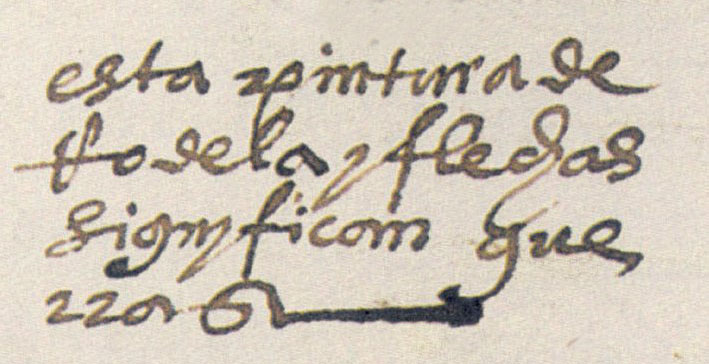 esta pintura de
rodela y flechas
signyfican gue
rras